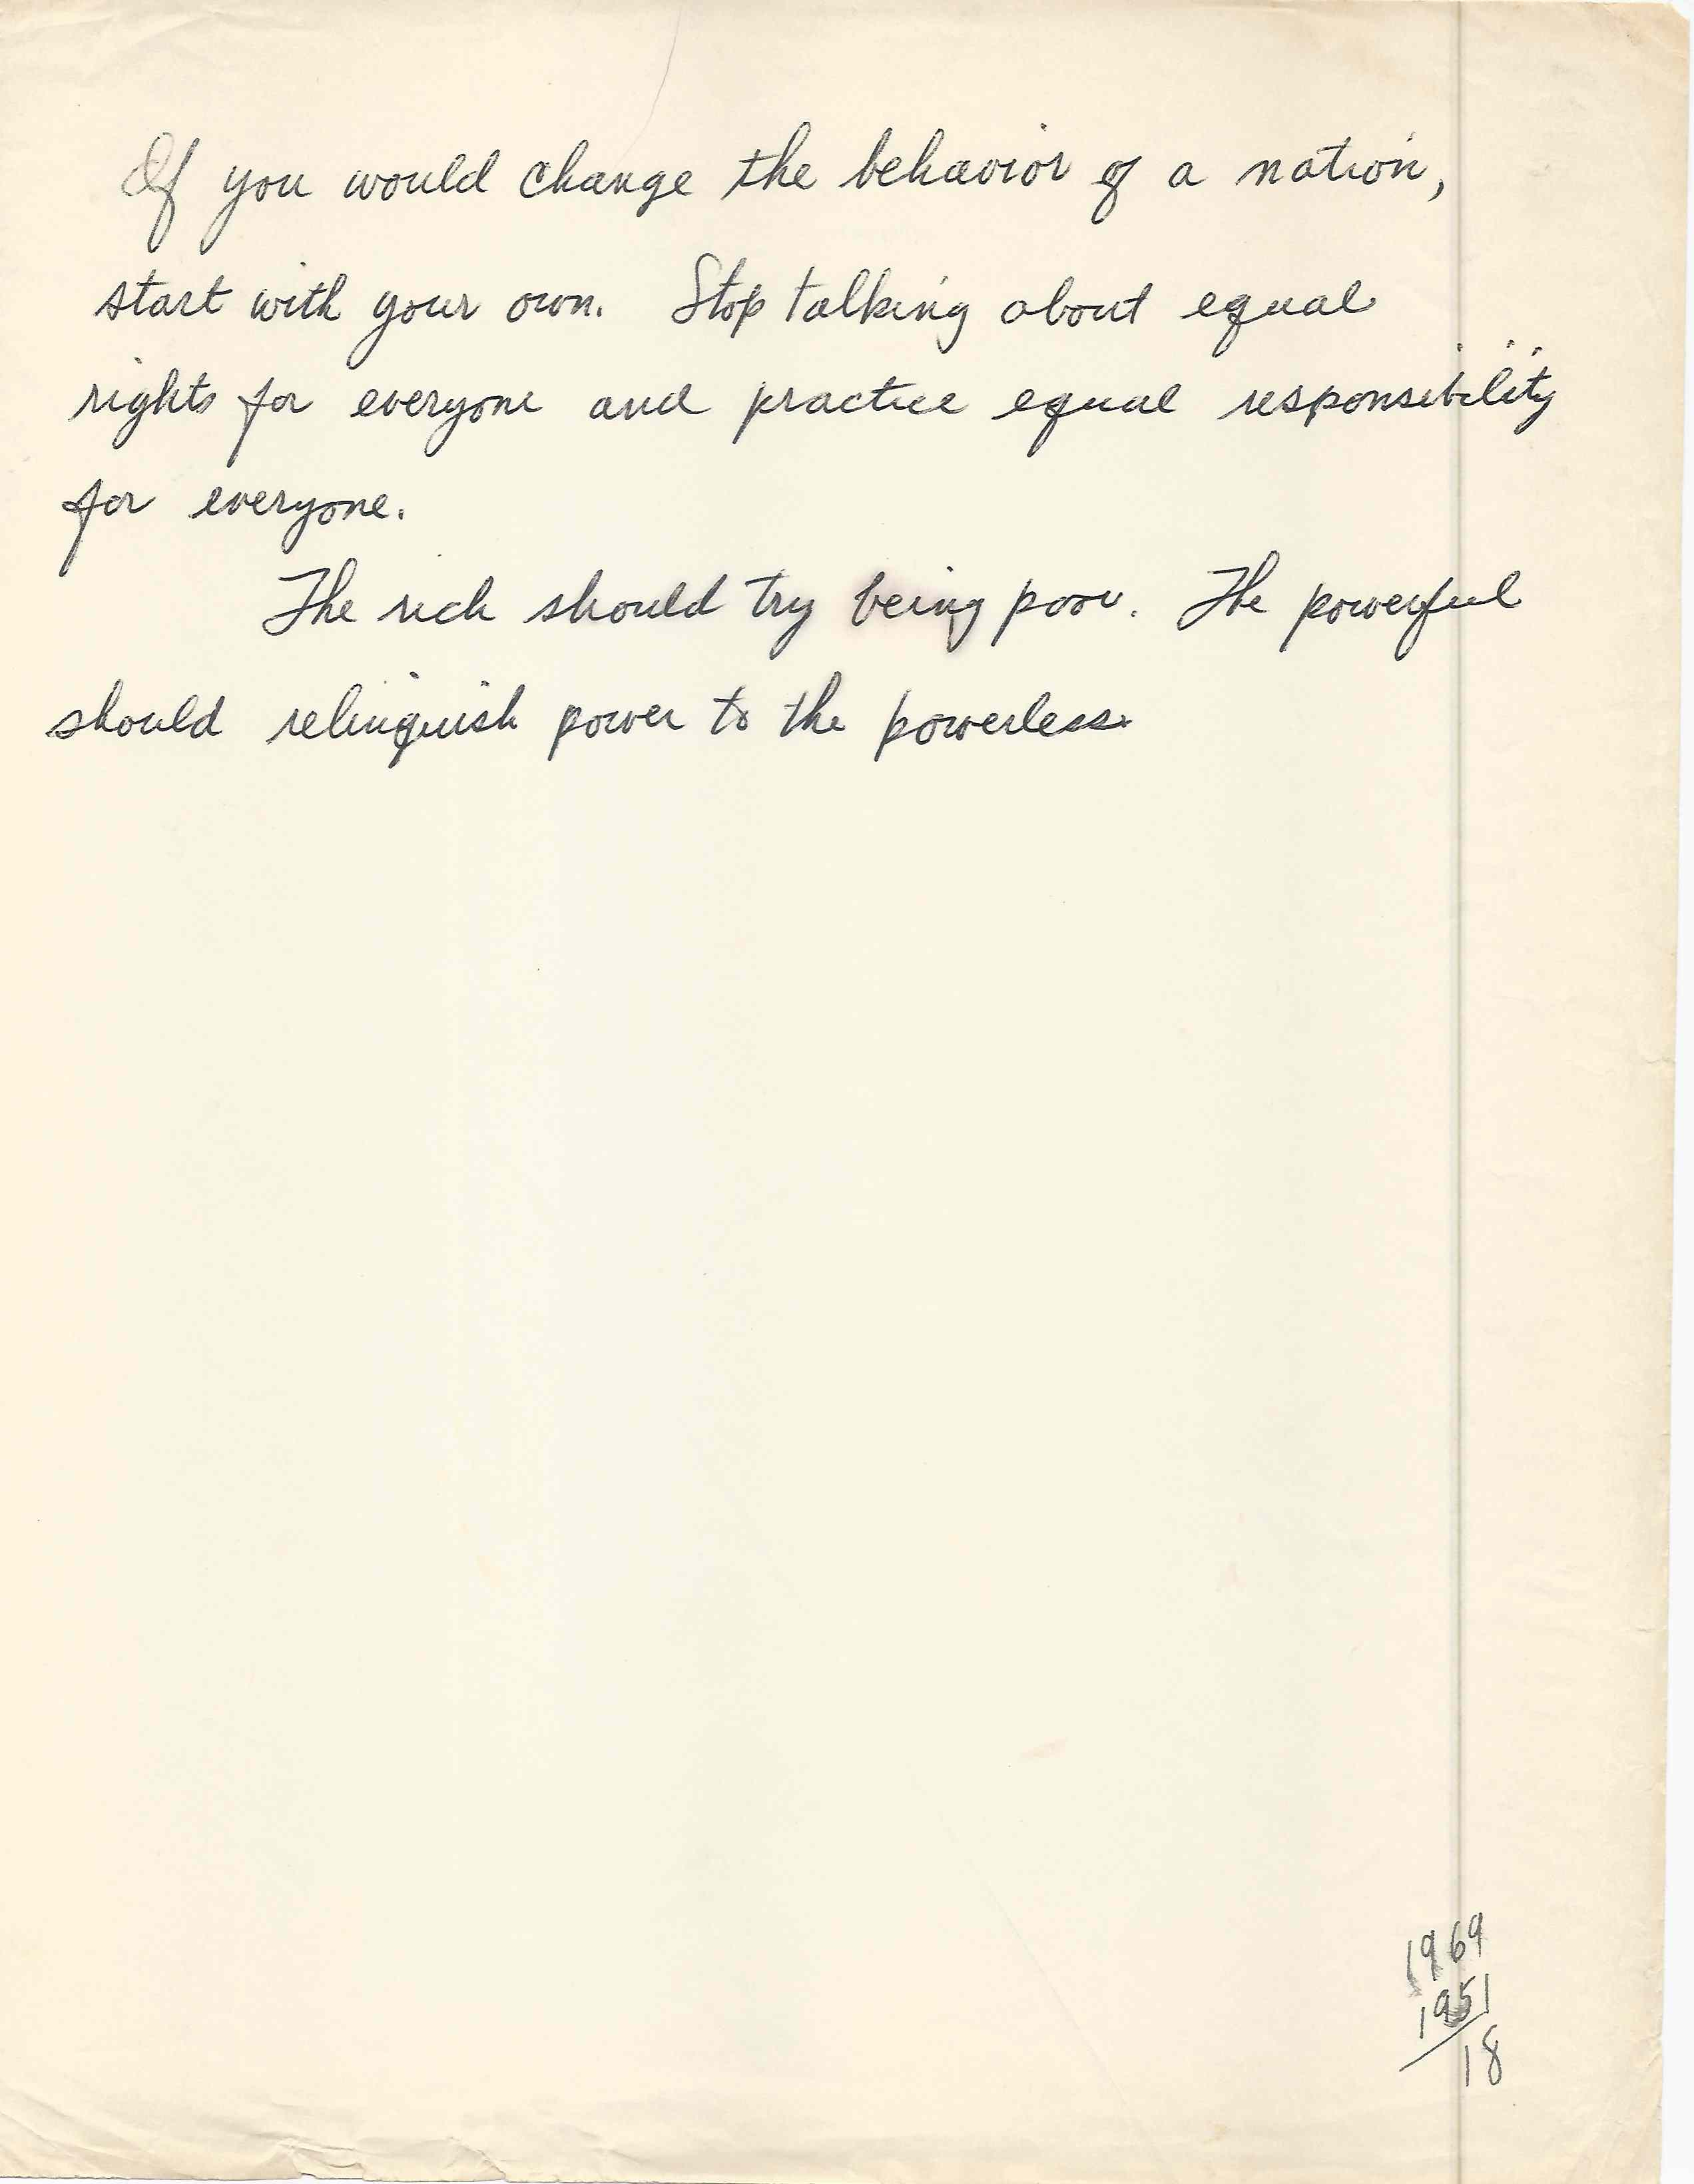 If you would change the behavior of a nation,
start with your own. Stop talking about equal
rights for everyone and practice equal responsibility
for everyone.
The rich should try being poor. The powerful
should relinquish power to the powerless.
1969
1951
18